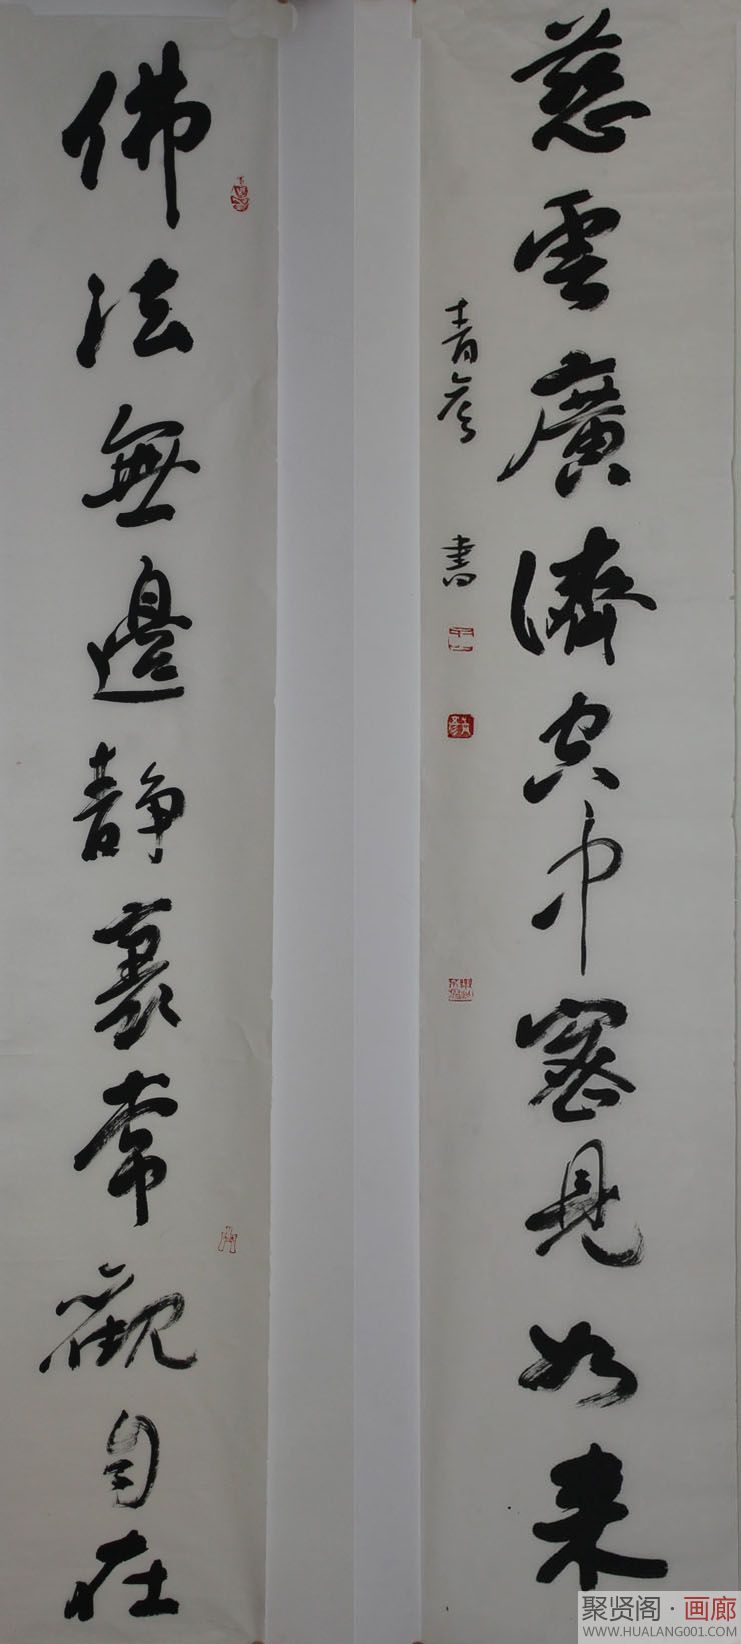 佛法無邊靜裏常觀自在
慈雲廣濟空中密見如来
青彦書
聚贤阁·画廊
WWW.HUALANG001.COM